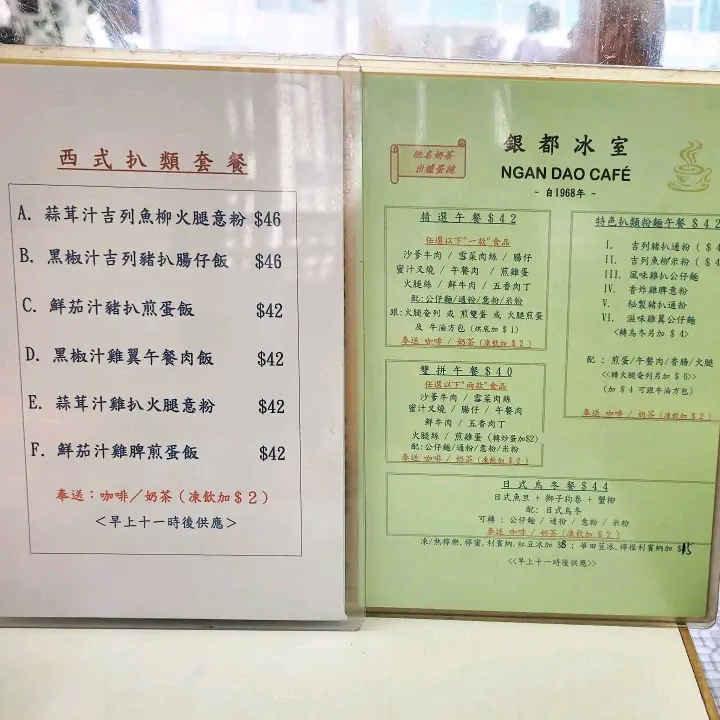 西式扒類套餐
A. 蒜茸汁吉列魚柳火腿意粉 $46
B. 黑椒汁吉列豬扒腸仔飯 $46
C. 鮮茄汁豬扒煎蛋飯 $42
D. 黑椒汁雞翼午餐肉飯 $42
E. 蒜茸汁雞扒火腿意粉 $42
F. 鮮茄汁雞脾煎蛋飯 $42
奉送：咖啡／奶茶（凍飲加＄2）
＜早上十一時後供應＞
馳名奶茶
出爐蛋撻
銀都冰室
NGAN DAO CAFÉ
~ 自1968年 ~
精選午餐$42
任選以下"一款"食品
沙爹牛肉 / 雪菜肉絲 / 腸仔
蜜汁叉燒 / 午餐肉 / 煎雞蛋
火腿絲 / 鮮牛肉 / 五香肉丁
配:公仔麵/通粉/意粉/米粉
跟:火腿奄列 或 煎雙蛋 或 火腿煎蛋
及 牛油方包 (烘底加$1)
奉送 咖啡 / 奶茶 (凍飲加$2)
雙拼午餐$40
任選以下"兩款"食品
沙爹牛肉 / 雪菜肉絲
蜜汁叉燒 / 腸仔 / 午餐肉
鮮牛肉 / 五香肉丁
火腿絲 / 煎雞蛋 (轉炒蛋加$2)
配:公仔麵/通粉/意粉/米粉
奉送 咖啡 / 奶茶 (凍飲加$2)
特色扒類粉麵午餐 $42
I. 吉列豬扒通粉 ($4
II. 吉列魚柳米粉 ($
III. 風味雞扒公仔麵
IV. 香炸雞脾意粉
V. 秘製豬扒通粉
VI. 滋味雞翼公仔麵
<轉烏冬另加 $4>
配 : 煎蛋/午餐肉/香腸/火腿
<<轉火腿奄列另加 $6>>
(加 $4 可跟牛油方包)
奉送 咖啡 / 奶茶 (凍飲加$2)
日式烏冬餐$44
日式魚旦 + 獅子狗卷 + 蟹柳
配: 日式烏冬
可轉 : 公仔麵 / 通粉 / 意粉 / 米粉
奉送 咖啡 / 奶茶 (凍飲加$2)
凍/熱檸樂, 檸蜜, 利賓納, 紅豆冰加$8 ; 華田豆冰, 檸檬利賓納加$15
<<早上十一時後供應>>